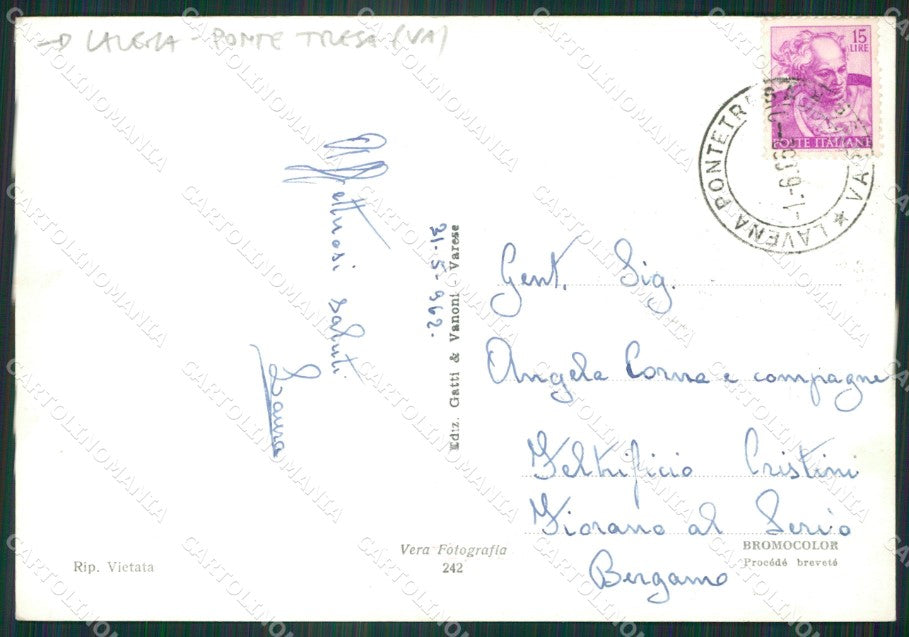 → LAVENA - PONTE TRESA (VA)
15
LIRE
POSTE ITALIANE
LAVENA PONTETR
VA
Affettuosi saluti
Laura
31-5-962.
Ediz. Gatti & Vanoni - Varese
Gent. Sig.
Angela Corna e compagne
Feltrificio Cristini
Fiorano al Serio
Bergamo
Vera Fotografia
242
Rip. Vietata
BROMOCOLOR
Procédé breveté
CARTOLINOMANIA